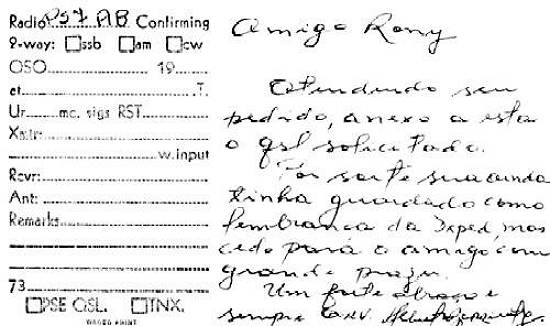 Radio PS7AB Confirming
2-way: ssb am cw
QSO 19
at T.
Ur mc. sigs RST
Xmtr:
w.input
Rcvr:
Ant:
Remarks
73
PSE QSL. TNX.
Amigo Rony
Atendendo seu
pedido, anexo a esta
o qsl solicitado.
Por sorte eu ainda
tinha guardado como
lembranca da Exped, mas
cedo para o amigo com
grande prazer.
Um forte abraço e
sempre